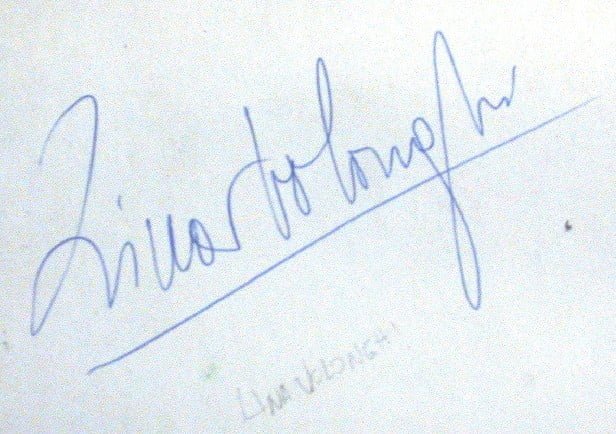 Lina Volonghi
LINA VOLONGHI